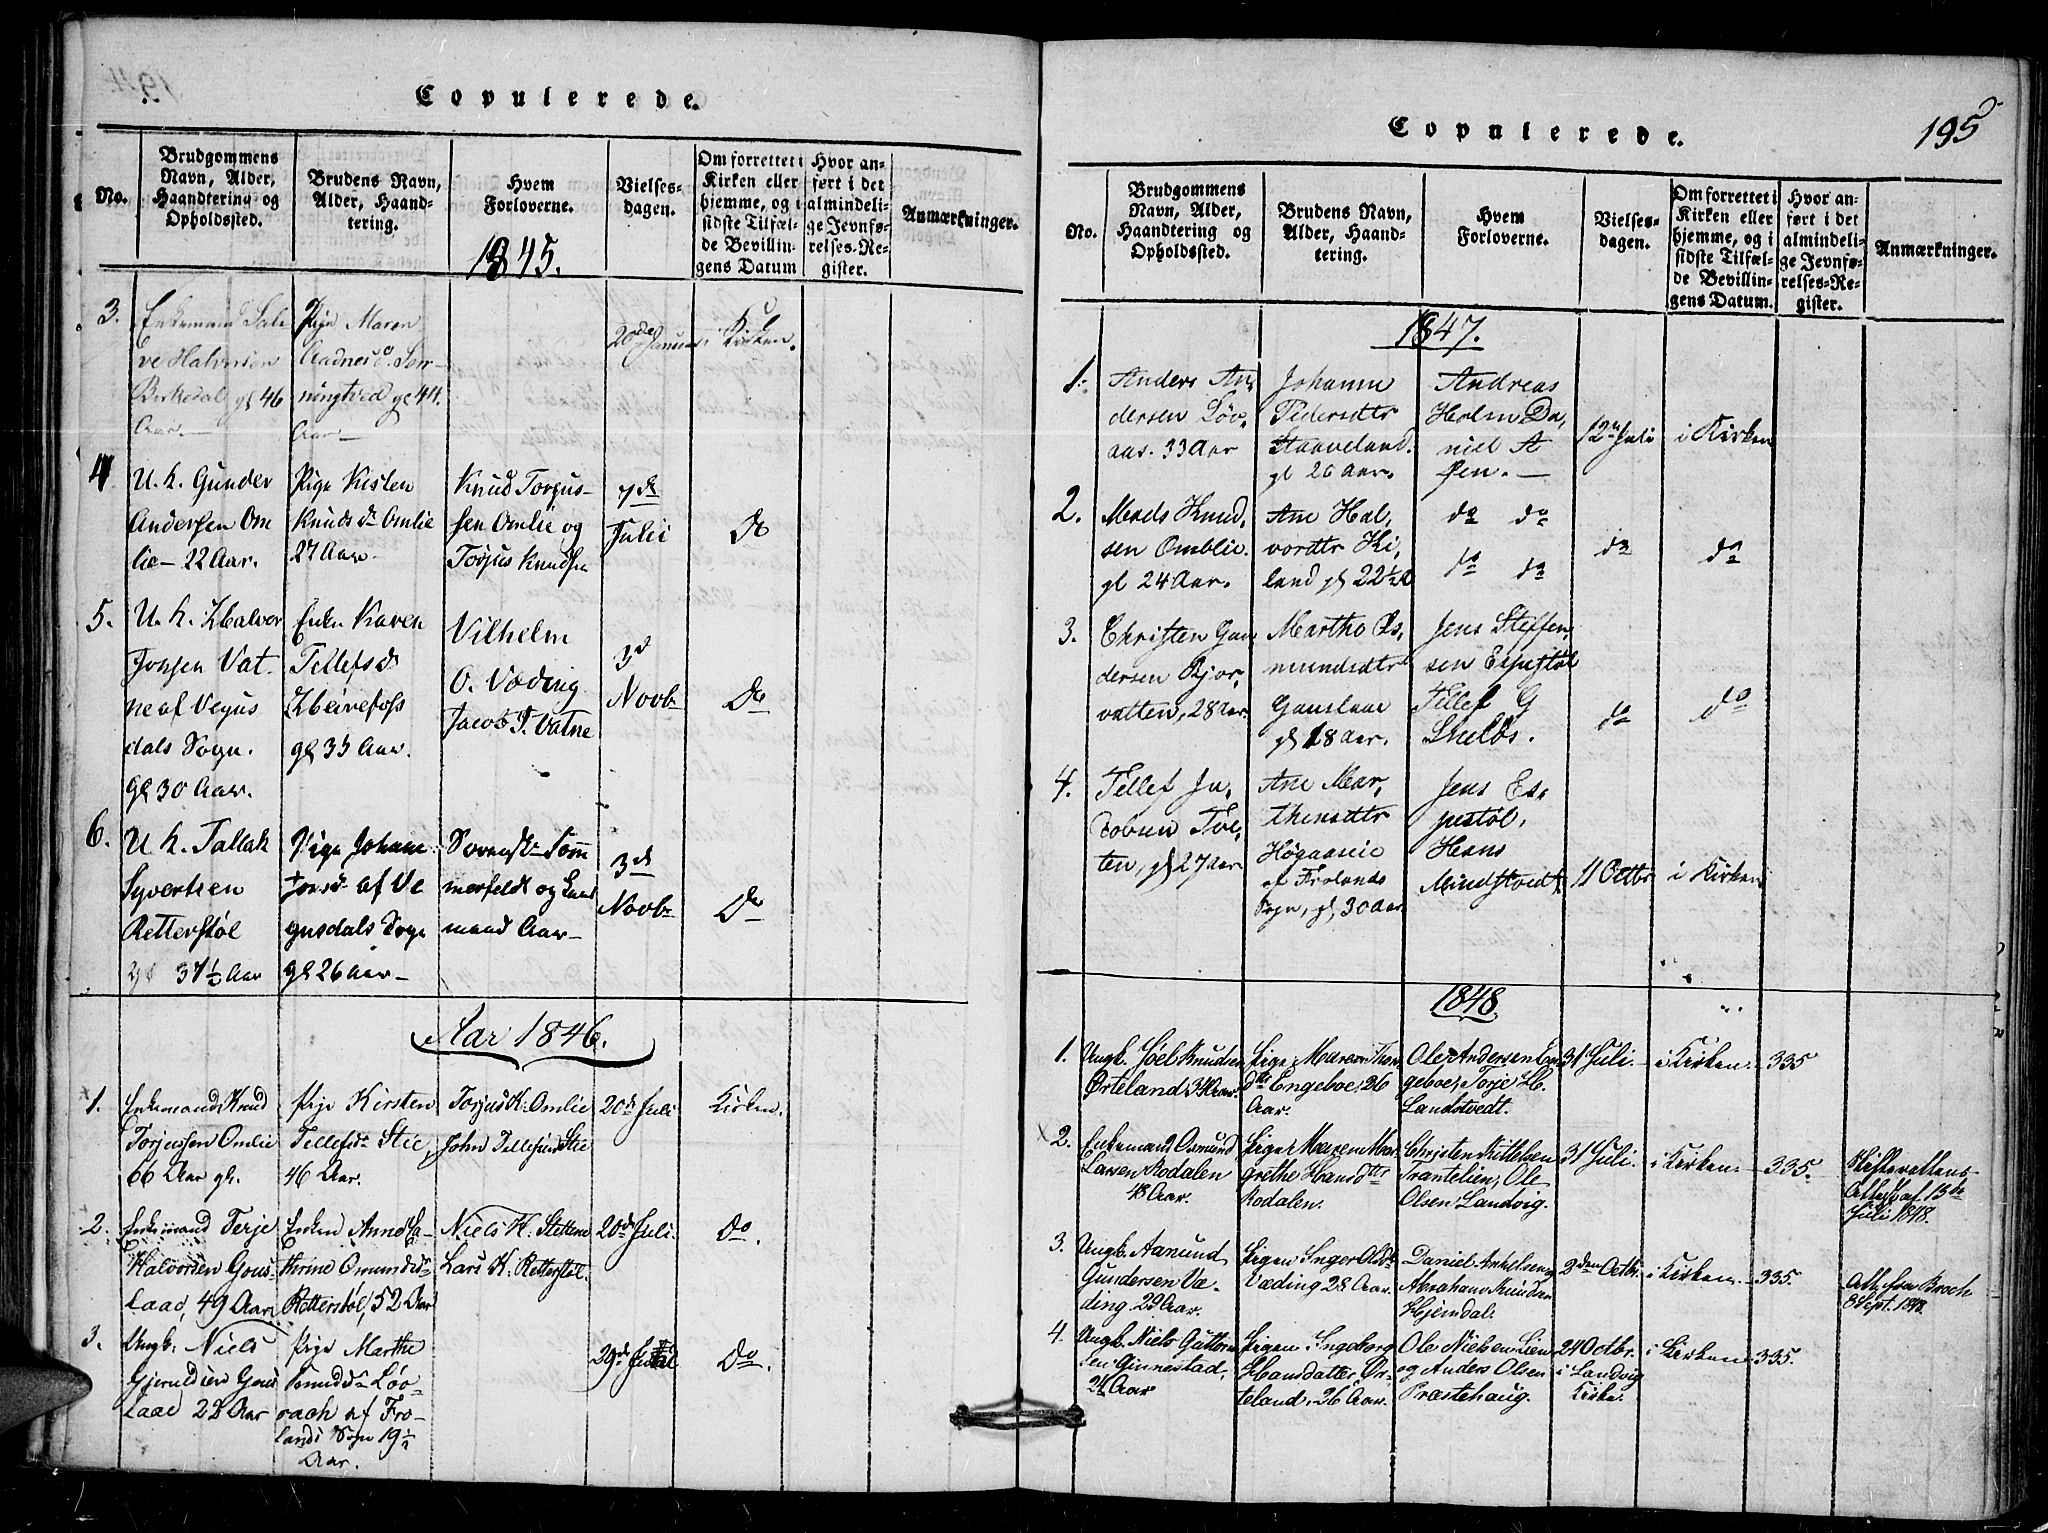 Copulerede.
No.
Brudgommens
Navn, Alder,
Haandtering og
Opholdssted.
Brudens Navn,
Alder, Haand-
tering.
Hvem
Forloverne.
Vielses-
dagen.
Om forrettet i
Kirken eller
hjemme, og i
sidste Tilfæl-
de Bevillin-
gens Datum
Hvor an-
ført i det
almindeli-
ge Jevnfø-
relses-Re-
gister.
Anmærkninger.
1845.
3.
Enkemand
Halvorsen
Birkedal gl 46
Aar.
Pige Maren
Aadnesd.
gl 44
Aar
20de Januar
i Kirken.
4
U. k. Gunder
Andersen Om
lie - 22 Aar.
Pige Kisten
Knudsdr Omlie
27 Aar.
Knud Torgus-
sen Omlie og
Torjus Knudsen
7de
Julii
Do
5.
U. k. Halvor
Jonsen Vat-
ne af Vegus
dals Sogn.
gl 30 Aar.
Enke Karen
Tellefsd
Heirefoss
gl 35 Aar.
Vilhelm
O. Væding
Jacob T. Vatne
3d
Novbr
Do
6.
U. k. Tallak
Syvertsen
Retterstøl
gl 37½ Aar
Pige Johane
Jonsd. af Ve
gusdals Sogn
gl 26 Aar
Sorensk. Somm
merfeldt og Lens
mand Aar
3d
Novbr
Do
Aar 1846.
1.
Enkemand Knud
Torjussen Omlie
66 Aar gl.
Pige Kirsten
Tellefsdr Stie,
46 Aar.
Torjus K. Omlie
John Tellefsen Stie
20de Juli
Kirken.
2.
Enkemand Terje
Halvorsen Gous-
laad, 49 Aar
Enken Anne Ca-
thrine Omundsdr
Retterstøl, 52 Aar
Niels H. Stettene
Lars K. Retterstøl.
20de Juli.
Do.
3.
Ungk. Niels
Gjeruldsen Gous
laae 22 Aar
Pige Marthe
Knudsd. Løv-
rach af Fro-
lands Sogn 19½
Aar.
29de
Do.
Copulerede.
195
No.
Brudgommens
Navn, Alder,
Haandtering og
Opholdssted.
Brudens Navn,
Alder, Haand-
tering.
Hvem
Forloverne.
Vielses-
dagen.
Om forrettet i
Kirken eller
hjemme, og i
sidste Tilfæl-
de Bevillin-
gens Datum.
Hvor an-
ført i det
almindeli-
ge Jevnfø-
relses-Re-
gister.
Anmærkninger.
1847.
1.
Anders An,
dersen Løv,
aas. 33 Aar
Johanne
Pedersdtr
Haaveland.
gl 26 Aar.
Andreas
Holm Da,
niel A
sen.
12te Juli
i Kirken
2.
Mads Knud,
sen Omblie.
gl 24 Aar.
Ane Hal,
vordtr Ki,
land gl 22½ A
do do
do do
do
do
3.
Christen Gun
dersen Bjor,
vatten, 28 Aar.
Marthe As,
mundsdtr
Gauslaae
gl 18 Aar.
Jens Steffen,
sen Espestøl
Tellef G
do
do
4.
Tellef Ja,
cobsen Tvei,
ten, gl 27 Aar
Ane Mar,
thinsdtr
Høgaasie
af Frolands
Sogn, gl 30 Aar.
Jens Es,
pestøl,
Hans
Mindstvedt.
11 Octbr
i Kirken
1848.
1.
Ungk. Joël Knudsen
Ørteland, 34 Aar.
Pige Maren Thor
dtr Engeboe, 26
Aar.
Ole Andersen En
geboe, Torje H.
Landstvedt.
31 Juli.
i Kirken.
335
2.
Enkemand Osmund
Larsen Rodalen
48 Aar.
Pige Maren Mar
grethe Hansdtr
Rodalen.
Christen Kittelsen
Trantelien, Ole
Olsen, Landvig.
31 Juli.
i Kirken.
335.
Skifterettens
Attest af 13de
Juli 1848.
3.
Ungk. Aanund
Gundersen Væ-
ding. 29 Aar.
Pigen Inger Olsdr
Væding 28 Aar.
Daniel
Abraham Knudsen
Hjemdal.
2den Octbr.
i Kirken.
335.
Att. fra Broch
8 Sept. 1848.
4.
Ungk. Niels Guttorm
sen Ginnestad,
24 Aar
Pigen Ingeborg
Hansdatter Ør-
teland, 26 Aar.
Ole Nielsen Lien
og Anders Olsen
Præstehaug.
24 Octbr.
i Landvig
Kirke.
i Kirken
335.